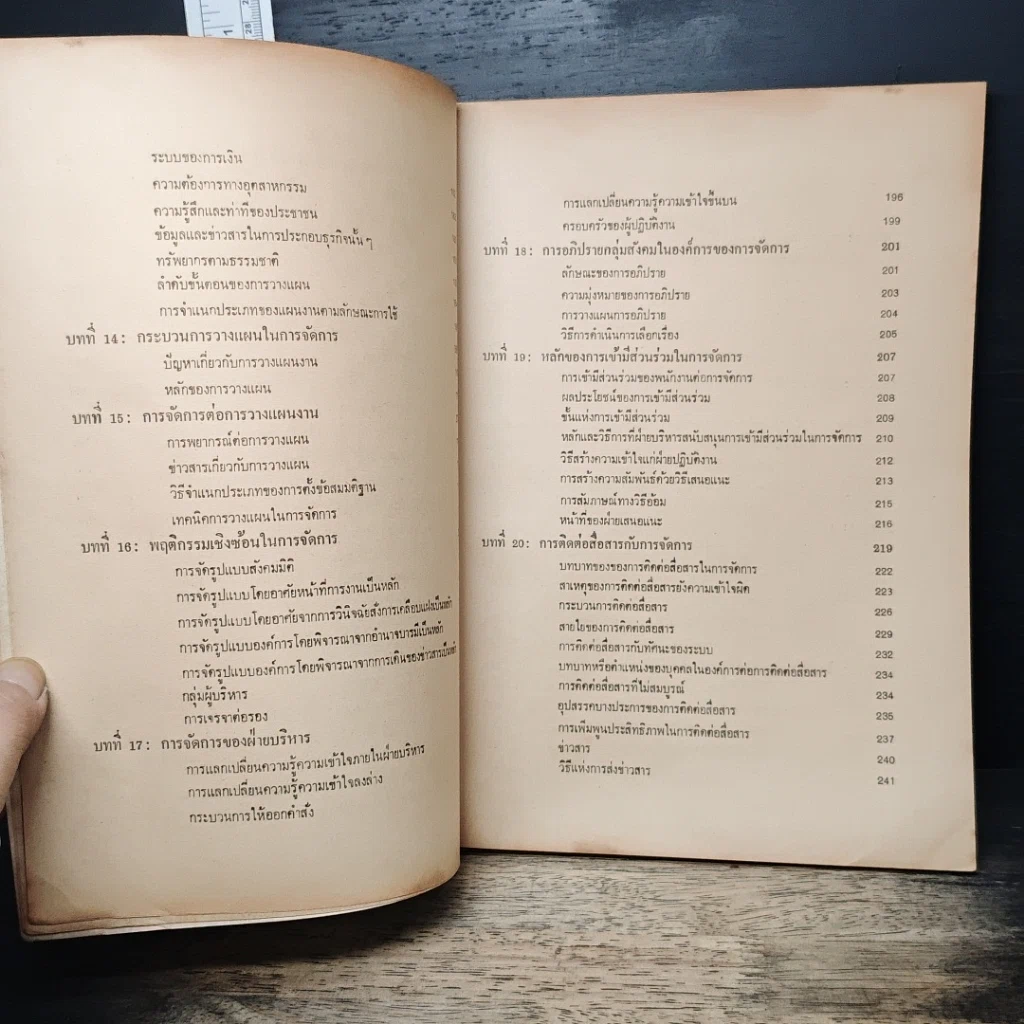 ระบบของการเงิน
ความต้องการทางอุตสาหกรรม
ความรู้สึกและท่าทีของประชาชน
ข้อมูลและข่าวสารในการประกอบธุรกิจนั้น ๆ
ทรัพยากรตามธรรมชาติ
ลำดับขั้นตอนของการวางแผน
การจำแนกประเภทของแผนงานตามลักษณะการใช้
บทที่ 14: กระบวนการวางแผนในการจัดการ
ปัญหาเกี่ยวกับการวางแผนงาน
หลักของการวางแผน
บทที่ 15: การจัดการต่อการวางแผนงาน
การพยากรณ์ต่อการวางแผน
ข่าวสารเกี่ยวกับการวางแผน
วิธีจำแนกประเภทของการตั้งข้อสมมติฐาน
เทคนิคการวางแผนในการจัดการ
บทที่ 16: พฤติกรรมเชิงซ้อนในการจัดการ
การจัดรูปแบบสังคมมิติ
การจัดรูปแบบโดยอาศัยหน้าที่การงานเป็นหลัก
การจัดรูปแบบโดยอาศัยจากการวินิจฉัยสั่งการเคลือบแฝงเป็นหลัก
การจัดรูปแบบองค์การโดยพิจารณาจากอำนาจบารมีเป็นหลัก
การจัดรูปแบบองค์การโดยพิจารณาจากการเดินของข่าวสารเป็นหลัก
กลุ่มผู้บริหาร
การเจรจาต่อรอง
บทที่ 17: การจัดการของฝ่ายบริหาร
การแลกเปลี่ยนความรู้ความเข้าใจภายในฝ่ายบริหาร
การแลกเปลี่ยนความรู้ความเข้าใจลงล่าง
กระบวนการให้ออกคำสั่ง
การแลกเปลี่ยนความรู้ความเข้าใจขึ้นบน 196
ครอบครัวของผู้ปฏิบัติงาน 199
บทที่ 18: การอภิปรายกลุ่มสังคมในองค์การของการจัดการ 201
ลักษณะของการอภิปราย 201
ความมุ่งหมายของการอภิปราย 203
การวางแผนการอภิปราย 204
วิธีการดำเนินการเลือกเรื่อง 205
บทที่ 19: หลักของการเข้ามีส่วนร่วมในการจัดการ 207
การเข้ามีส่วนร่วมของพนักงานต่อการจัดการ 207
ผลประโยชน์ของการเข้ามีส่วนร่วม 208
ขั้นแห่งการเข้ามีส่วนร่วม 209
หลักและวิธีการที่ฝ่ายบริหารสนับสนุนการเข้ามีส่วนร่วมในการจัดการ 210
วิธีสร้างความเข้าใจแก่ฝ่ายปฏิบัติงาน 212
การสร้างความสัมพันธ์ด้วยวิธีเสนอแนะ 213
การสัมภาษณ์ทางวิธีอ้อม 215
หน้าที่ของฝ่ายเสนอแนะ 216
บทที่ 20: การติดต่อสื่อสารกับการจัดการ 219
บทบาทของของการติดต่อสื่อสารในการจัดการ 222
สาเหตุของการติดต่อสื่อสารยังความเข้าใจผิด 223
กระบวนการติดต่อสื่อสาร 226
สายใยของการติดต่อสื่อสาร 229
การติดต่อสื่อสารกับทัศนะของระบบ 232
บทบาทหรือตำแหน่งของบุคคลในองค์การต่อการติดต่อสื่อสาร 234
การติดต่อสื่อสารที่ไม่สมบูรณ์ 234
อุปสรรคบางประการของการติดต่อสื่อสาร 235
การเพิ่มพูนประสิทธิภาพในการติดต่อสื่อสาร 237
ข่าวสาร 240
วิธีแห่งการส่งข่าวสาร 241